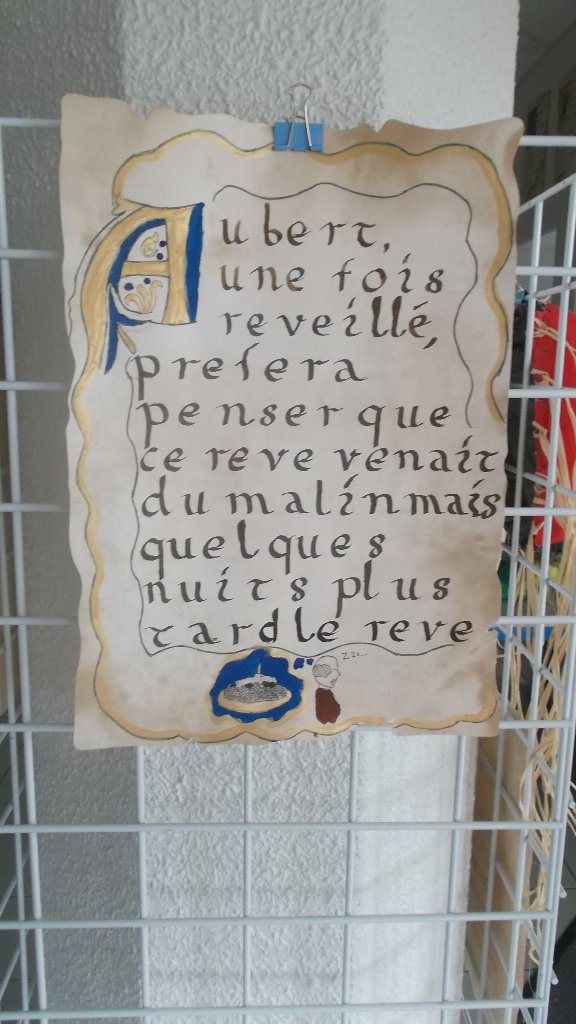 Aubert,
une fois
reveillé,
prefera
penser que
ce reve venait
du malin mais
quelques
nuits plus
tard le reve
zzz...